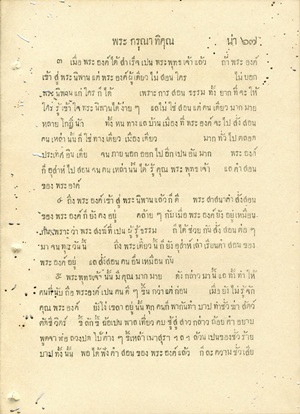 พระ กรุณา ทิคุณ น่า ๖๗
๓ เมื่อ พระ องค์ ได้ สำเร็จ เปน พระ พุทธ เจ้า แล้ว ถ้า พระ องค์
เข้า สู่ พระ นิพพาน แต่ พระ องค์ ผู้ เดียว ไม่ สอน ใคร ไม่ บอก
พระ นิพพาน แก่ ใคร ก็ ได้ เพราะ การ สอน ธรรม ทั้ง ยาก ที่ จะ ให้
ใคร รู้ เข้า ใจ พระ นิพาน ได้ ง่าย ๆ แล ไม่ ใช่ สอน แต่ คน เดียว มาก มาย
หลาย โกฏิ นัก ทั้ง หน ทาง แล บ้าน เมือง ที่ พระ องค์ จะ ไป สั่ง สอน
คน เหล่า นั้น ก็ ใช่ ทาง เดียว เมือง เดียว มาก ทั่ว ไป ตลอด
ประเทศ อิน เดีย จน ภาย นอก ออก ไป อีก เปน อัน มาก พระ องค์
ก็ อุส่าห์ ไป สอน จน คน เหล่า นั้น ได้ รู้ คุณ พระ พุทธ เจ้า แล คำ สอน
ของ พระ องค์
๔ ถึง พระ องค์ เข้า สู่ พระ นิพาน แล้ว ก็ ดี พระ สาสนา คำ สั่ง สอน
ของ พระ องค์ ก็ ยัง คง อยู่ คล้าย ๆ กับ เมื่อ พระ องค์ ยัง อยู่ เหมือน
กัน เพราะ ว่า พระ สงฆ์ ที่ เปน ผู้ รู้ ธรรม ก็ ได้ ช่วย กัน สั่ง สอน ต่อ ๆ
มา จน ทุก วัน นี้ ถึง พระ เดี๋ยว นี้ ก็ ยัง อุส่าห์ เล่า เรียน คำ สอน ของ
พระ องค์ อยู่ แล สั่ง สอน คน อื่น เหมือน กัน
๕ พระ พุทธ เจ้า นั้น มี คุณ มาก มาย ดัง กล่าว มา นี้ แล ทั้ง ทำ ให้
คน ที่ นับ ถือ พระ องค์ เปน คน ดี ๆ ขึ้น กว่า แต่ ก่อน เมื่อ ยัง ไม่ รู้ จัก
คุณ พระ องค์ ยัง โง่ เขลา อยู่ นั้น ทุก คน ก็ พา กัน ทำ บาป ทำ ชั่ว ฆ่า สัตว์